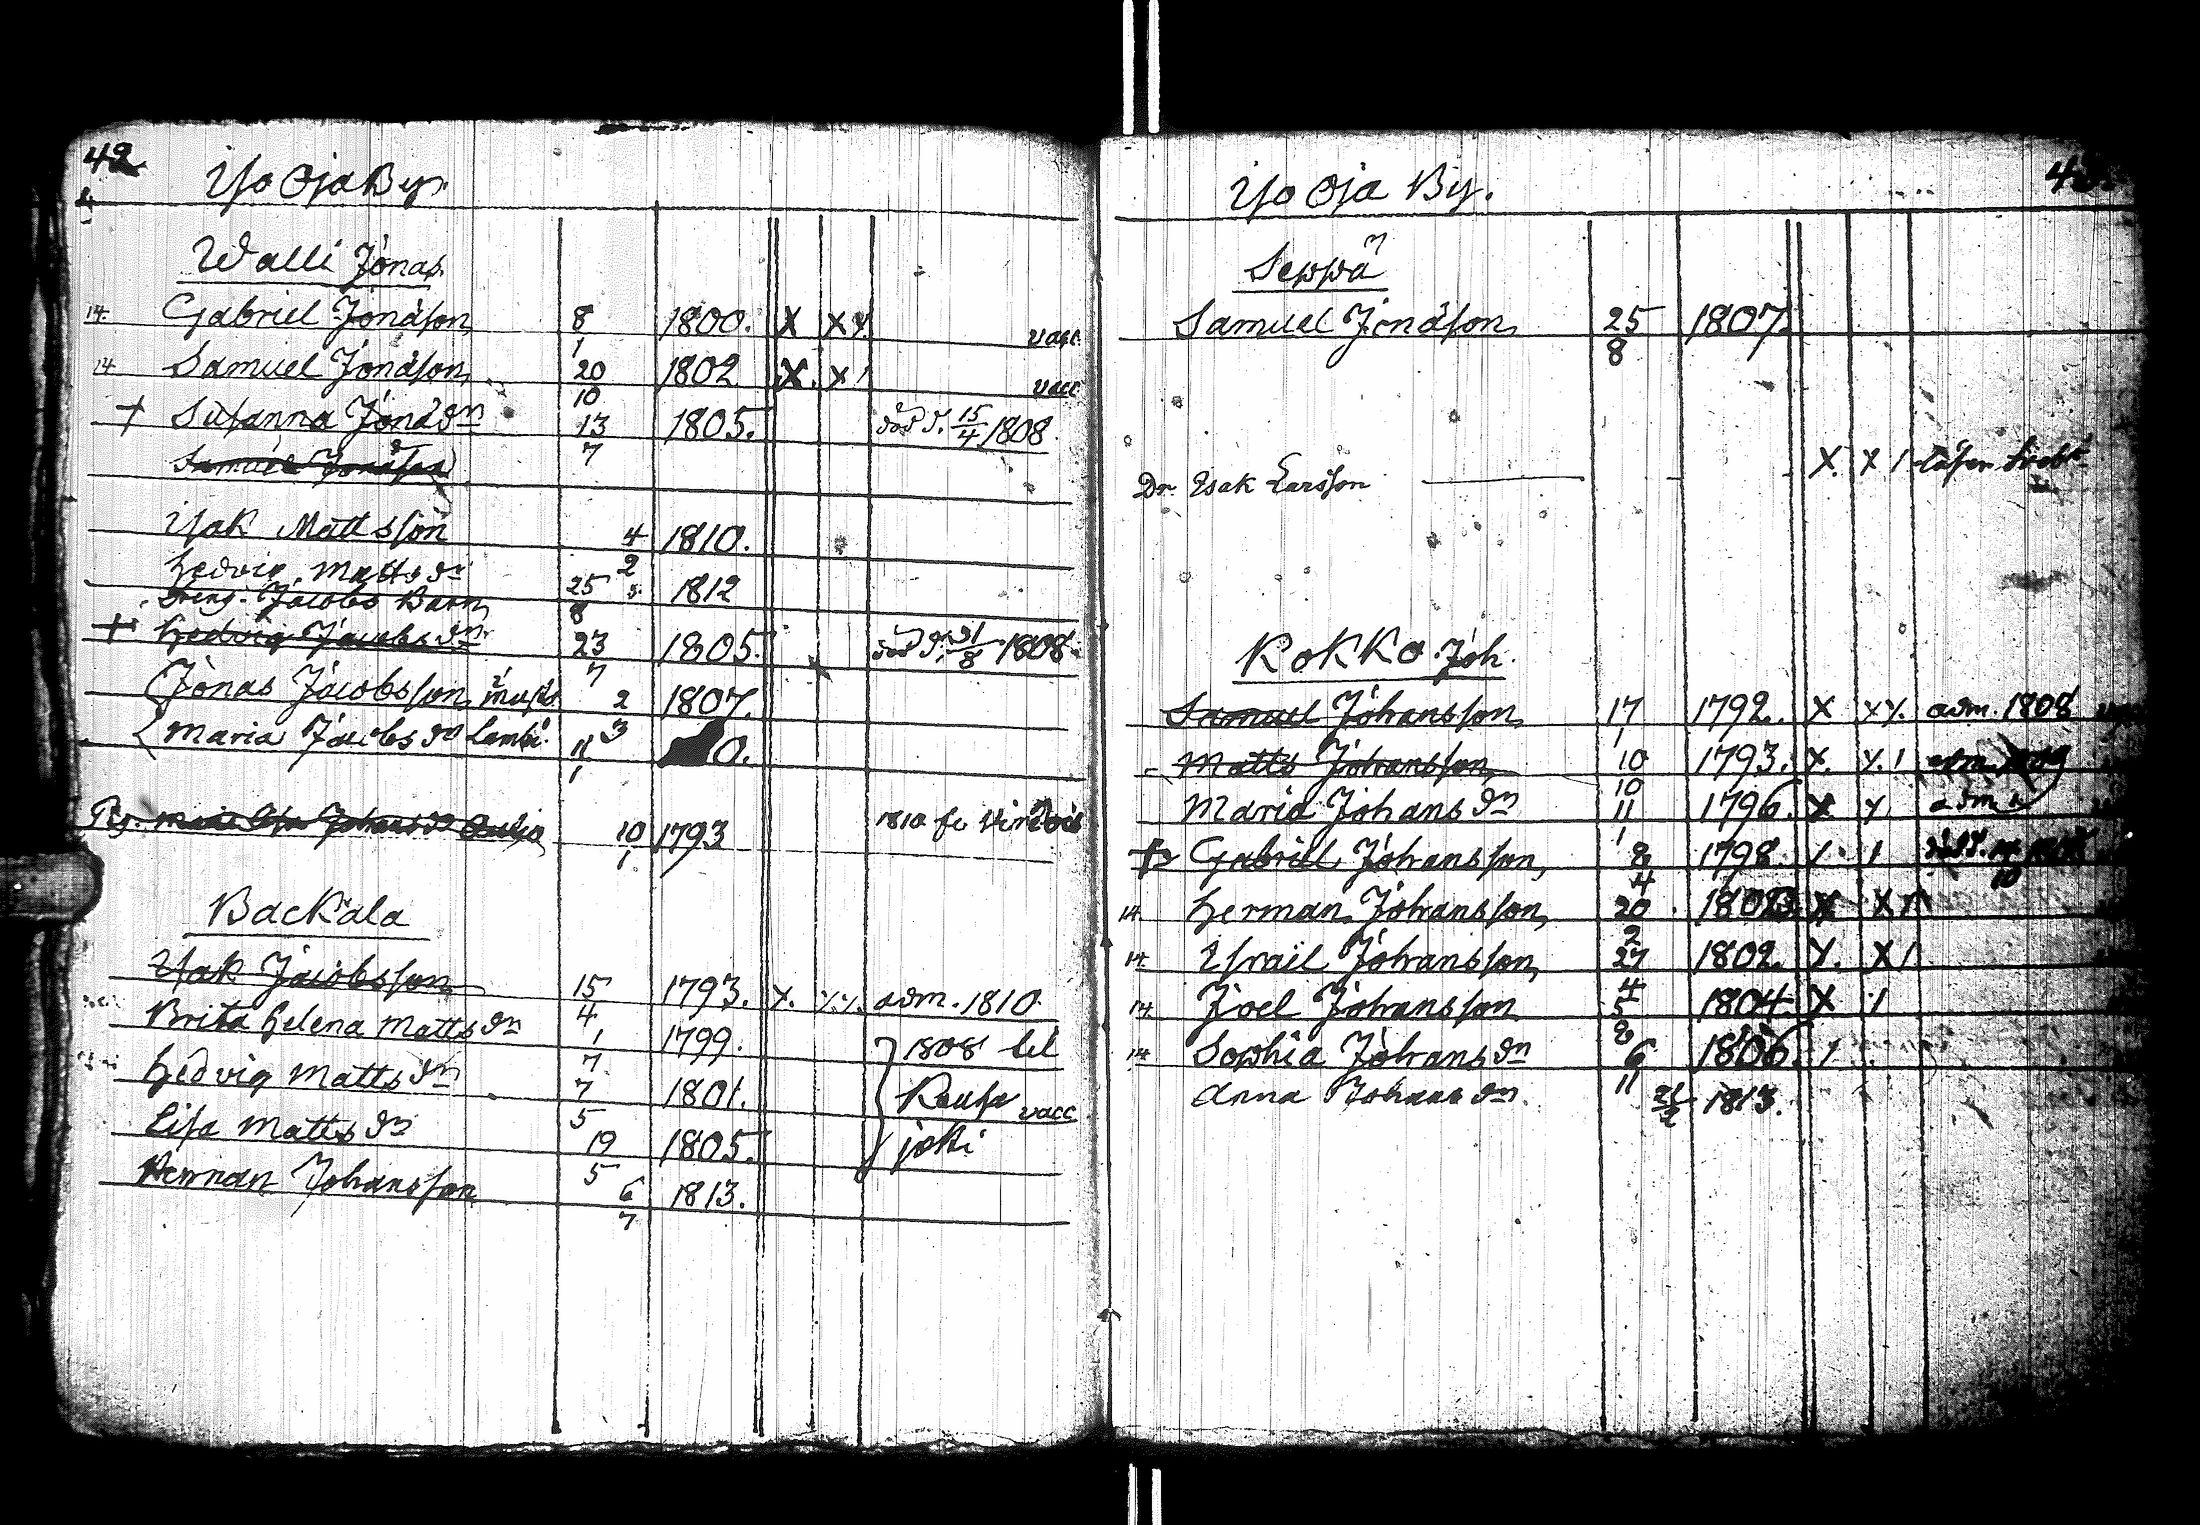 42
Iso Oja By.
Walli Jonas
14. Gabriel Jonasson 8/1 1800. X XX. vacc.
14 Samuel Jonasson 20/10 1802 X. X / vacc
† Susanna Jonæ dn 13/7 1805. död d. 15/4 1808.
Samuel Jonasson
Isak Mattsson 4/2 1810.
Hedvig Matts dr 25/8 1812
Dreng. Jacobs Barn
† Hedvig Jacobs dn 23/7 1805. död d. 31/8 1808.
Jonas Jacobsson 2/3 1807.
Maria Jacobs dr 11/1 0.
Pig. Johans dr 10/1 1793 1810 fr.
Backala
Isak Jacobsson 15/4 1793. X. XX. adm. 1810
Brita Helena Matts dn 1/7 1799. 1808 til
Hedvig Matts dn 7/5 1801. Rausa vacc
Lisa Matts dn 19/5 1805. joki
Herman Johansson 6/7 1813.
Iso Oja By.
Seppä
Samuel Jonasson 25/8 1807.
Dr. Isak Larsson X. X /
Kokko Joh.
Samuel Johansson 17/1 1792. X XX. adm. 1808
Matts Johansson 10/10 1793. X. X. /
Maria Johans dn 11/1 1796. X X. adm
† Gabriel Johansson 8/4 1798 / /
14. Herman Johansson 20/2 X X
14. Israel Johansson 27/4 1802. X. X /
14. Joel Johansson 5/8 1804. X /
14. Sophia Johans dn 6/11 1806. /
Anna Johans dn. 21/2 1813.